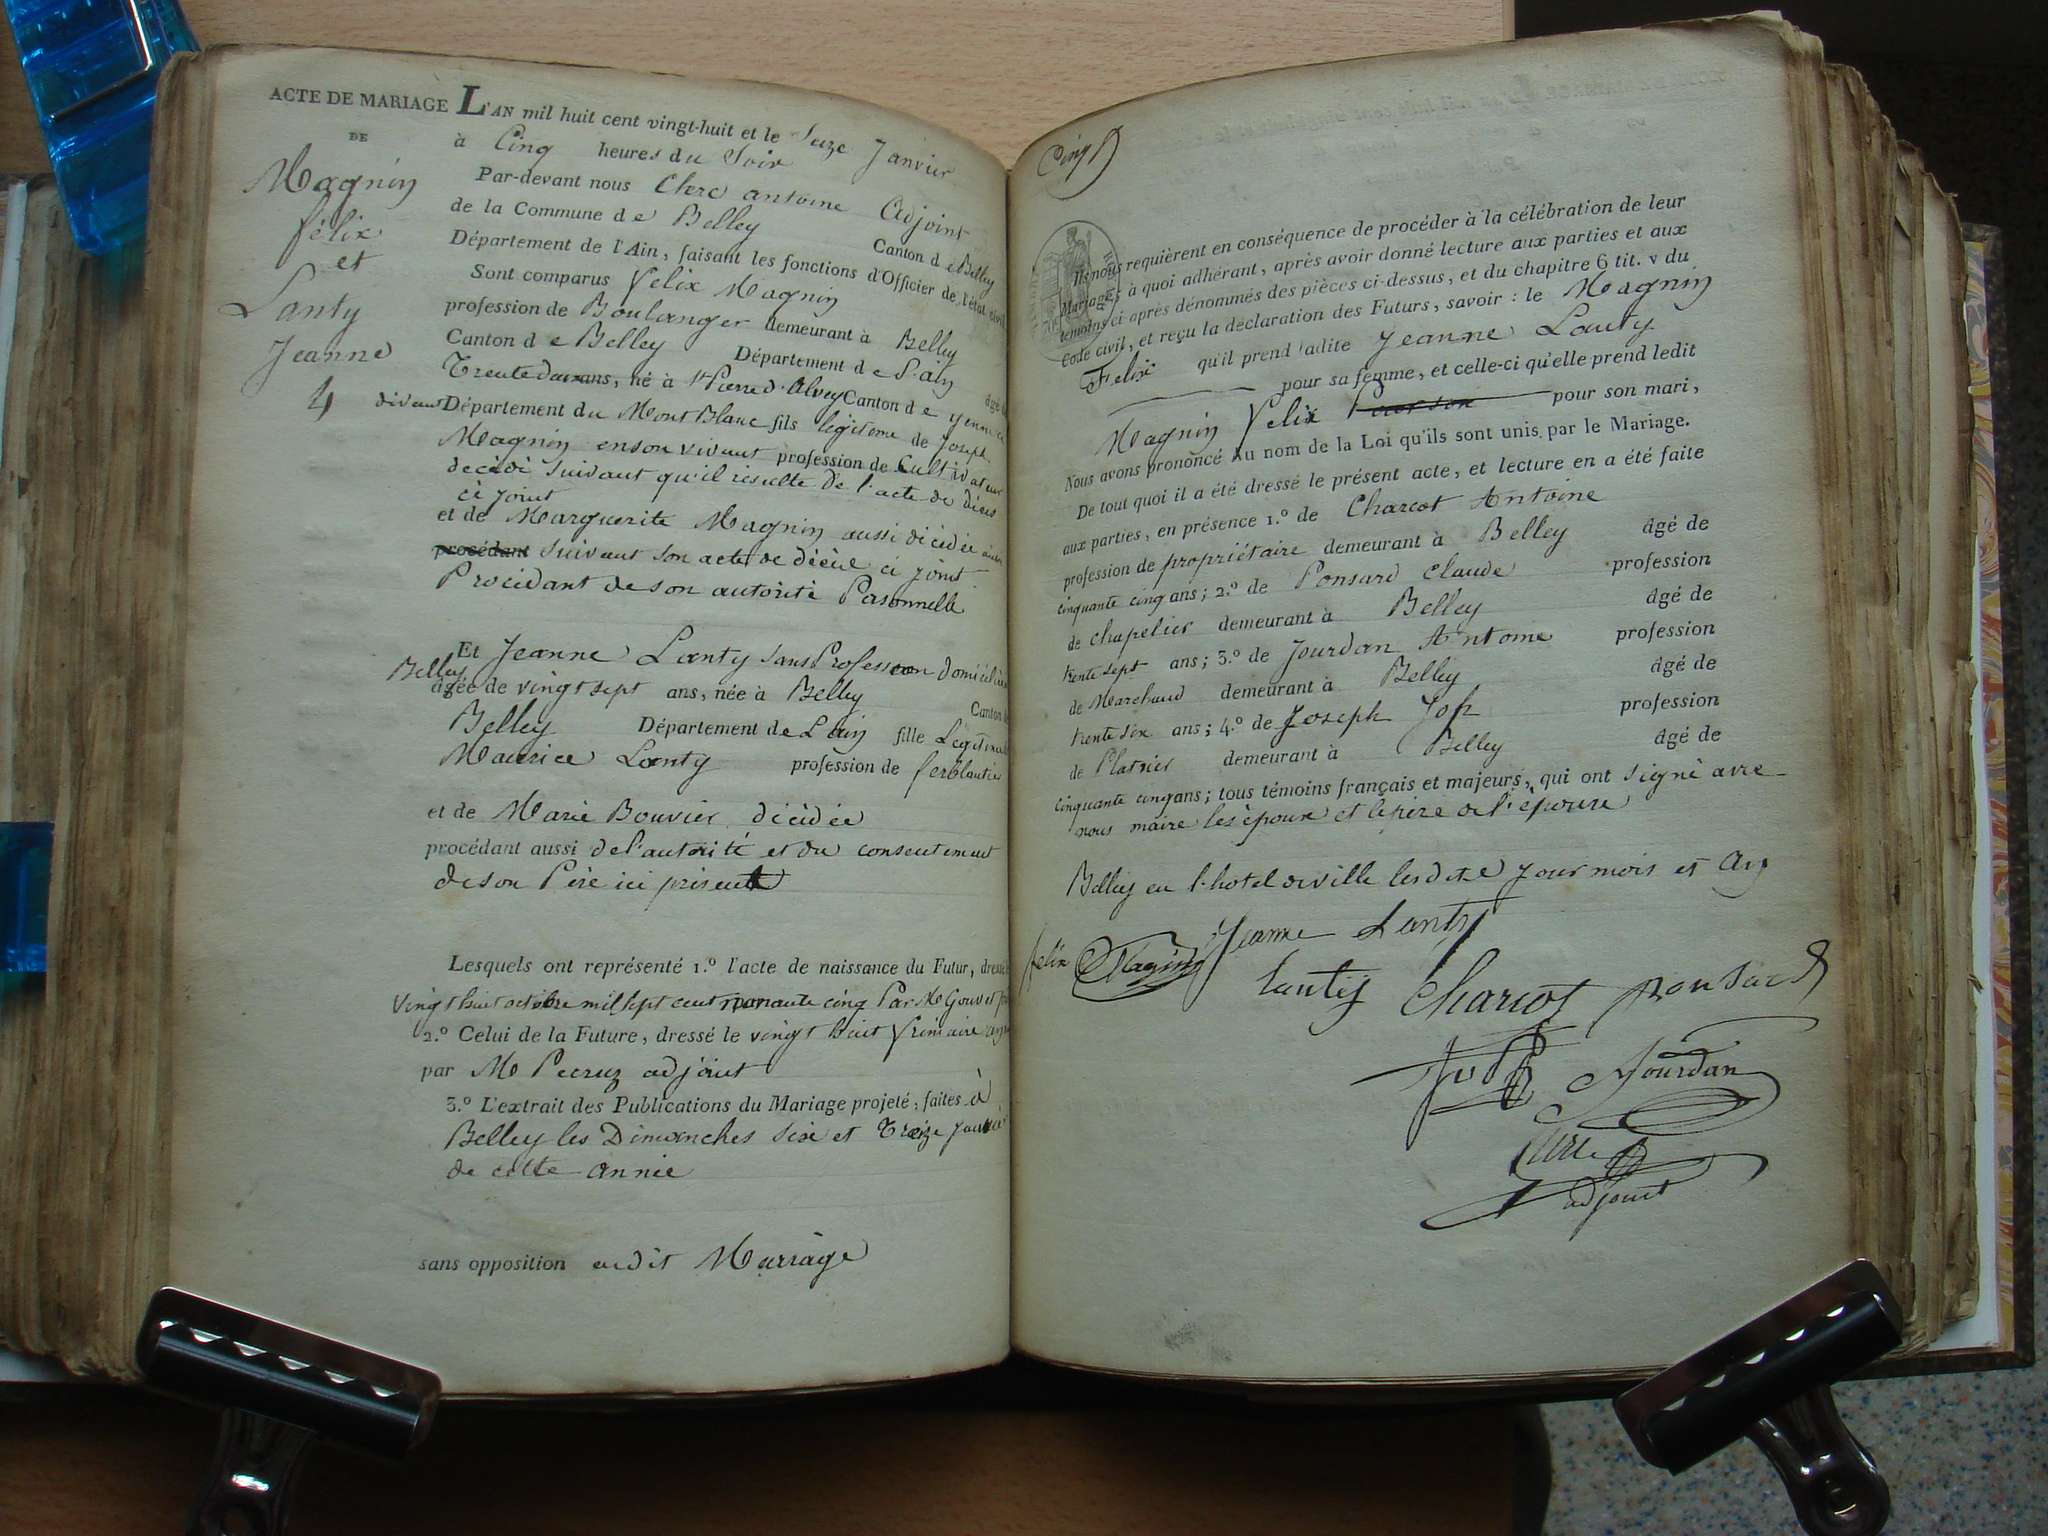 ACTE DE MARIAGE
DE
Magnin
félix
et
Lanty
Jeanne
4
L'AN mil huit cent vingt-huit et le Seize Janvier
à Cinq heures du Soir
Par-devant nous Clerc antoine Adjoint
de la Commune de Belley Canton de Belley
Département de l'Ain, faisant les fonctions d'Officier de l'état civil
Sont comparus Félix Magnin
profession de Boulanger demeurant à Belley
Canton de Belley Département de L'ain âgé
Trente deux ans, né à St Pierre d'Alvey Canton de yenne
Département du Mont Blanc fils légitime de Joseph
Magnin en son vivant profession de Cultivateur
décédé suivant qu'il résulte de l'acte de décès
ci joint
et de Marguerite Magnin aussi décédée
procédant suivant son acte de décès ci joint
Procédant de son autorité Personnelle
Et Jeanne Lanty sans Profession domiciliée
Belley
âgée de vingt sept ans, née à Belley Canton de
Belley Département de Lain fille Légitime
Maurice Lanty profession de ferblantier
et de Marie Bouvier décédée
procédant aussi de l'autorité et du consentement
de son Père ici présent
Lesquels ont représenté 1.º l'acte de naissance du Futur, dressé
vingt huit octobre mil sept cent nonante cinq Par Mr
2.º Celui de la Future, dressé le vingt huit frimaire
par Mr adjoint
3.º L'extrait des Publications du Mariage projeté, faites à
Belley les Dimanches Six et Treize Janvier
de cette année
sans opposition audit Marriage
Cinq
Ils nous requièrent en conséquence de procéder à la célébration de leur
Mariage; à quoi adhérant, après avoir donné lecture aux parties et aux
témoins ci-après dénommés des pièces ci-dessus, et du chapitre 6 tit. v du
Code civil, et reçu la déclaration des Futurs, savoir : le Magnin
Felix qu'il prend ladite Jeanne Lanty
pour sa femme, et celle-ci qu'elle prend ledit
Magnin Felix Pour son pour son mari,
Nous avons prononcé au nom de la Loi qu'ils sont unis par le Mariage.
De tout quoi il a été dressé le présent acte, et lecture en a été faite
aux parties, en présence 1.º de Charcot Antoine
profession de propriétaire demeurant à Belley âgé de
cinquante cinq ans; 2.º de Ponsard Claude profession
de chapelier demeurant à Belley âgé de
trente sept ans; 3.º de Jourdan Antoine profession
de Marchand demeurant à Belley âgé de
trente six ans; 4.º de Joseph profession
de Platrier demeurant à Belley âgé de
cinquante cinq ans; tous témoins français et majeurs, qui ont signé avec
nous maire les époux et le père de l'épouse
Belley en l'hotel de ville lesdits Jour mois et An
felix Magnin Jeanne Lanty
Lanty Charcot Ponsard
Jourdan
Clerc
adjoint